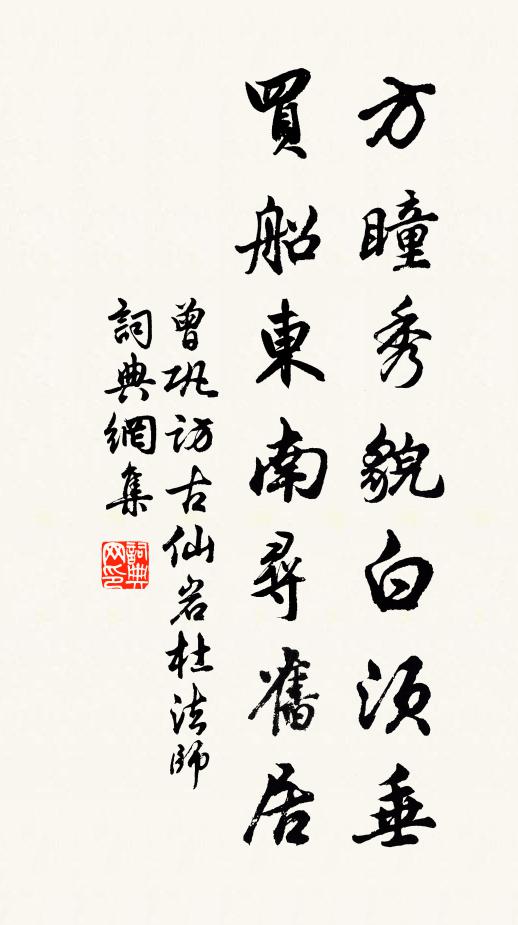 方瞳秀貌白须垂
買船東南尋舊居
曾巩訪古仙岩杜法師
詞典網集
詞典网印